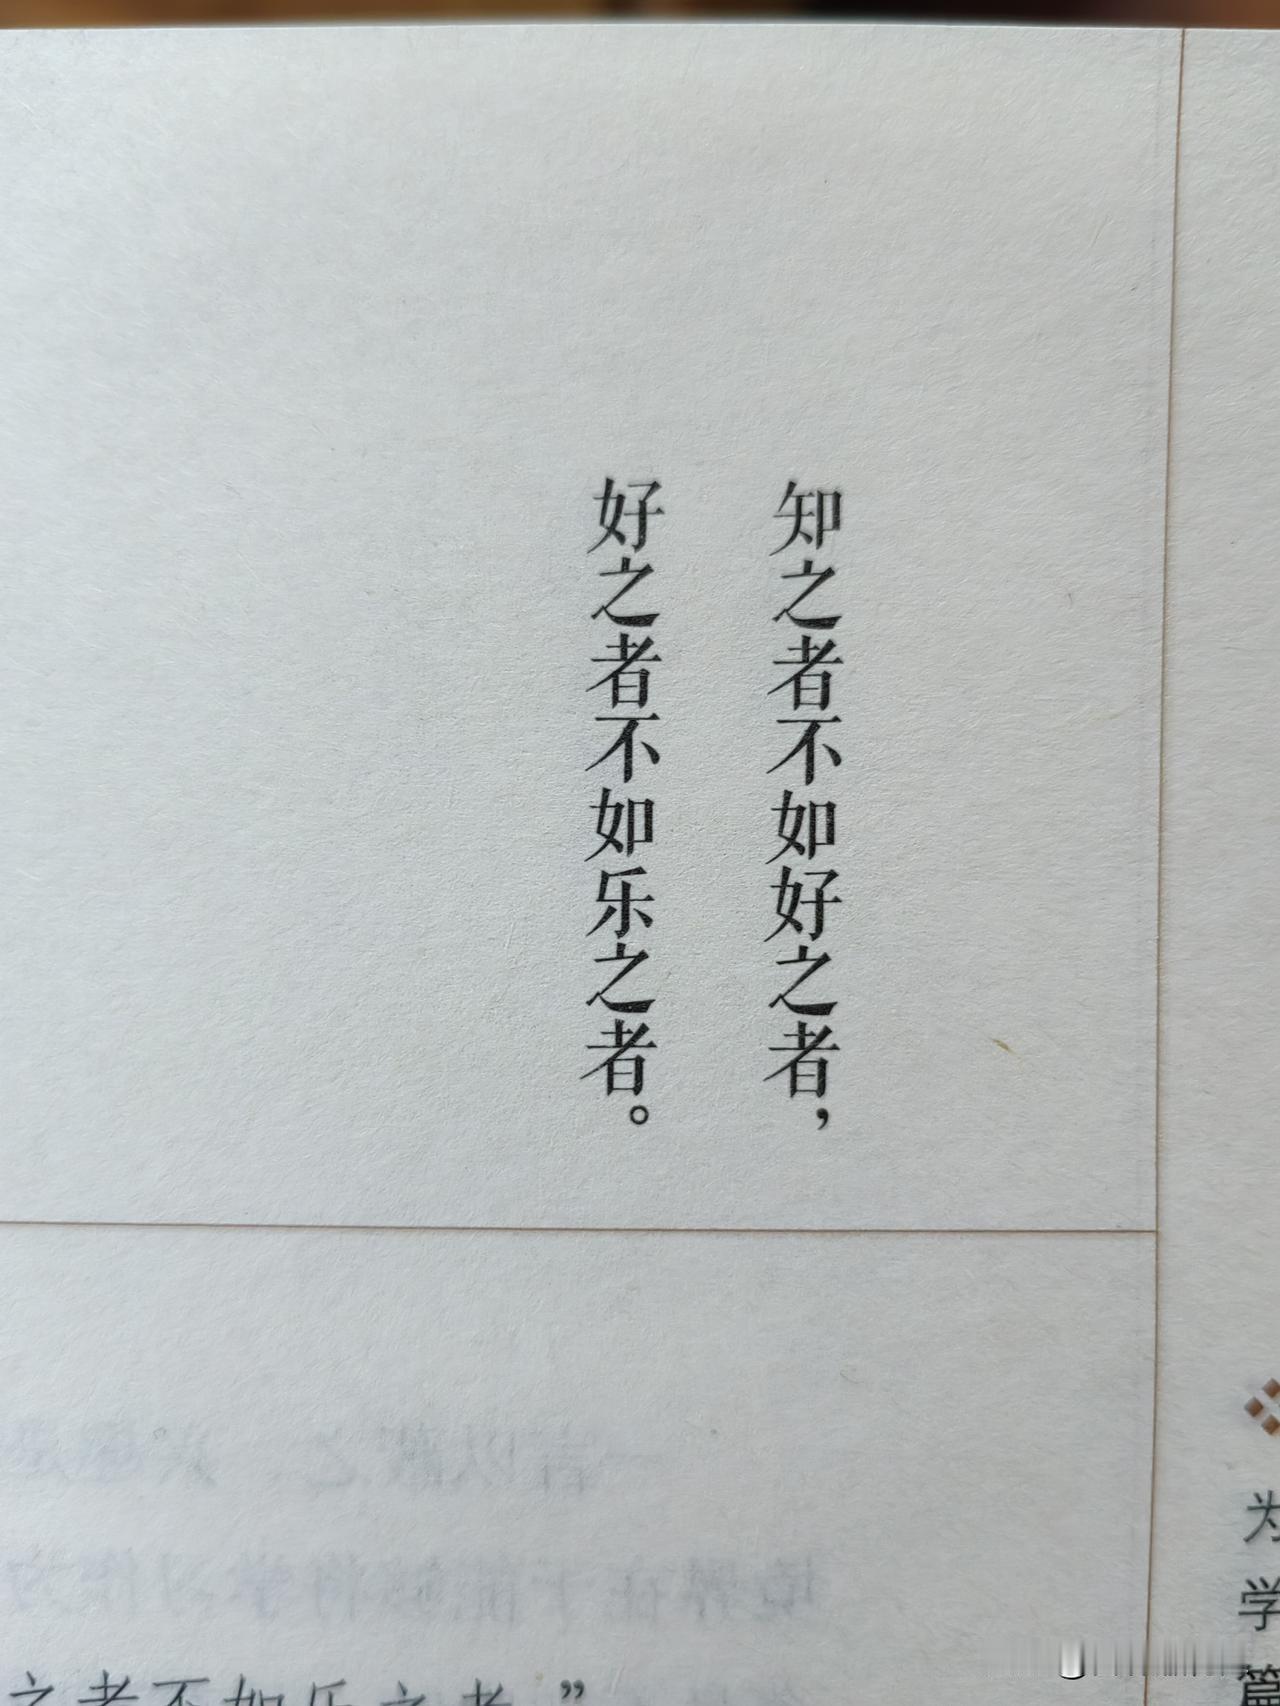 知之者不如好之者，
好之者不如乐之者。
为
学
篇
之者不如乐之者。”